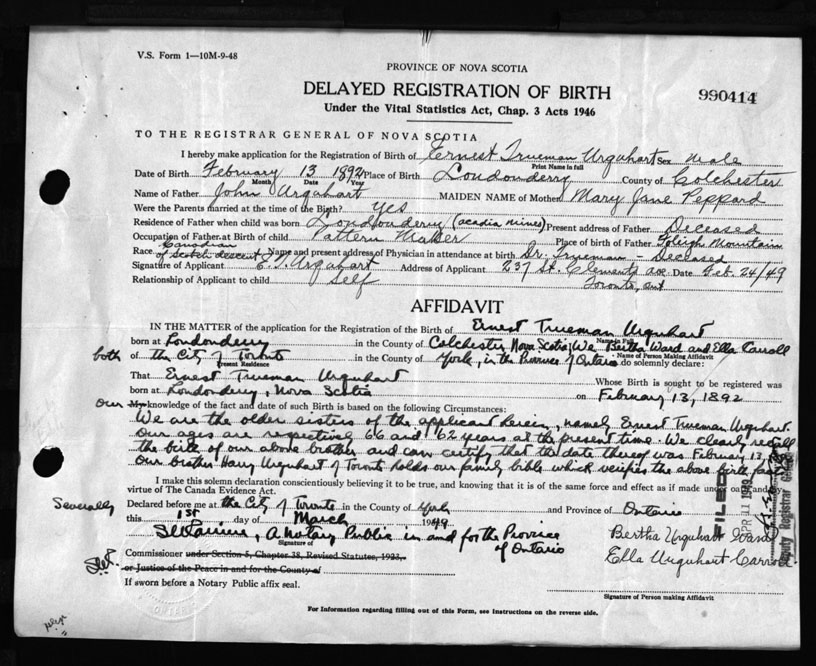 V.S. Form 1—10M-9-48
PROVINCE OF NOVA SCOTIA
DELAYED REGISTRATION OF BIRTH
990414
Under the Vital Statistics Act, Chap. 3 Acts 1946
TO THE REGISTRAR GENERAL OF NOVA SCOTIA
I hereby make application for the Registration of Birth of Ernest Trueman Urquhart Sex Male
Print Name in full
Date of Birth February 13 1892 Place of Birth Londonderry County of Colchester
Month Date Year
Name of Father John Urquhart MAIDEN NAME of Mother Mary Jane Peppard
Were the Parents married at the time of the Birth? Yes
Residence of Father when child was born Londonderry (acadia mines) Present address of Father Deceased
Occupation of Father at Birth of child Pattern Maker Place of birth of Father Foleigh Mountain
Canadian
Race of Scotch descent Name and present address of Physician in attendance at birth Dr. Trueman - Deceased
Signature of Applicant E. T. Urquhart Address of Applicant 237 St. Clements ave Date Feb. 24/49
Relationship of Applicant to child Self Toronto, Ont
AFFIDAVIT
IN THE MATTER of the application for the Registration of Birth of Ernest Trueman Urquhart
Name in Full
born at Londonderry in the County of Colchester, Nova Scotia, We Bertha Ward and Ella Carroll
Name of Person Making Affidavit
both of the City of Toronto in the County of York, in the Province of Ontario do solemnly declare:
Present Residence
That Ernest Trueman Urquhart Whose Birth is sought to be registered was
born at Londonderry, Nova Scotia on February 13, 1892
our My knowledge of the fact and date of such Birth is based on the following Circumstances:
We are the older sisters of the applicant herein, namely Ernest Trueman Urquhart.
Our ages are respectively 66 and 62 years at the present time. We clearly recall
the birth of our above brother and can certify that the date thereof was February 13,
Our brother Harry Urquhart of Toronto holds our family bible which verifies the above birth
I make this solemn declaration conscientiously believing it to be true, and knowing that it is of the same force and effect as if made under oath and by
virtue of The Canada Evidence Act.
Severally Declared before me at the City of Toronto in the County of York and Province of Ontario
this 1st day of March 1949
A Notary Public in and for the Province
of Ontario
Signature of
Bertha Urquhart Ward
Ella Urquhart Carroll
Commissioner under Section 5, Chapter 38, Revised Statutes, 1923,
or Justice of the Peace in and for the County of
If sworn before a Notary Public affix seal.
Signature of Person making Affidavit
For Information regarding filling out of this Form, see Instructions on the reverse side.
FILED
APR 11 1949
Deputy Registrar General